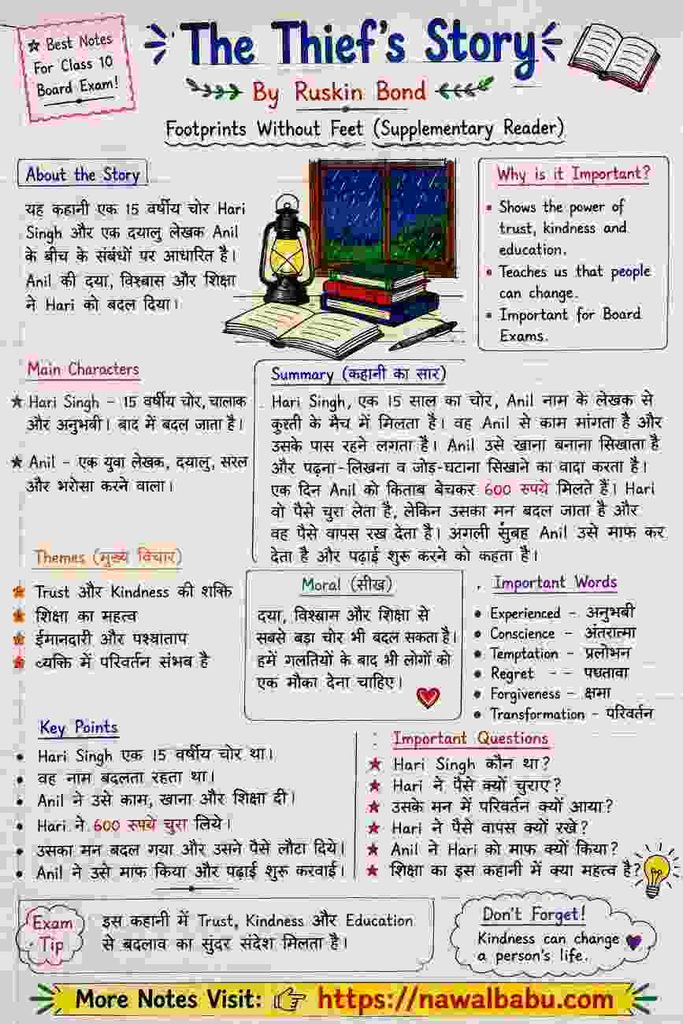 ★ Best Notes
For Class 10
Board Exam!
The Thief's Story
By Ruskin Bond
Footprints Without Feet (Supplementary Reader)
About the Story
यह कहानी एक 15 वर्षीय चोर Hari
Singh और एक दयालु लेखक Anil
के बीच के संबंधों पर आधारित है।
Anil की दया, विश्बास और शिक्षा
ने Hari को बदल दिया।
Why is it Important?
• Shows the power of
trust, kindness and
education.
• Teaches us that people
can change.
• Important for Board
Exams.
Main Characters
★ Hari Singh – 15 वर्षीय चोर, चालाक
और अनुभबी। बाद में बदल जाता है।
★ Anil – एक युवा लेखक, दयालु, सरल
और भरोसा करने वाला।
Summary (कहानी का सार)
Hari Singh, एक 15 साल का चोर, Anil नाम के लेखक से
कुश्ती के मैच में मिलता है। वह Anil से काम मांगता है और
उसके पास रहने लगता है। Anil उसे खाना बनाना सिखाता है
और पढ़ना-लिखना व जोड़-घटाना सिखाने का वादा करता है।
एक दिन Anil को किताब बेचकर 600 रुपये मिलते हैं। Hari
वो पैसे चुरा लेता है, लेकिन उसका मन बदल जाता है और
वह पैसे वापस रख देता है। अगली सुंबह Anil उसे माफ कर
देता है और पढ़ाई शुरू करने को कहता है।
Themes (मुख्य विचार)
★ Trust और Kindness की शक्ति
★ शिक्षा का महत्व
★ ईमानदारी और पश्चाताप
★ व्यक्ति में परिवर्तन संभव है
Moral (सीख)
दया, विश्बास और शिक्षा से
सबसे बड़ा चोर भी बदल सकता है।
हमें गलतियों के बाद भी लोगों को
एक मौका देना चाहिए।
Important Words
• Experienced – अनुभबी
• Conscience – अंतरात्मा
• Temptation – प्रलोभन
• Regret – – पछतावा
• Forgiveness – क्षमा
• Transformation – परिवर्तन
Key Points
• Hari Singh एक 15 वर्षीय चोर था।
• वह नाम बदलता रहता था।
• Anil ने उसे काम, खाना और शिक्षा दी।
• Hari ने 600 रुपये चुरा लिये।
• उसका मन बदल गया और उसने पैसे लौटा दिये।
• Anil ने उसे माफ किया और पढ़ाई शुरू करवाई।
Important Questions
★ Hari Singh कौन था?
★ Hari ने पैसे क्यों चुराए?
★ उसके मन में परिवर्तन क्यों आया?
★ Hari ने पैसे वापस क्यों रखे?
★ Anil ने Hari को माफ क्यों किया?
★ शिक्षा का इस कहानी में क्या महत्व है?
Exam
Tip
इस कहानी में Trust, Kindness और Education
से बदलाव का सुंदर संदेश मिलता है।
Don't Forget!
Kindness can change
a person's life.
More Notes Visit: 👉 https://nawalbabu.com